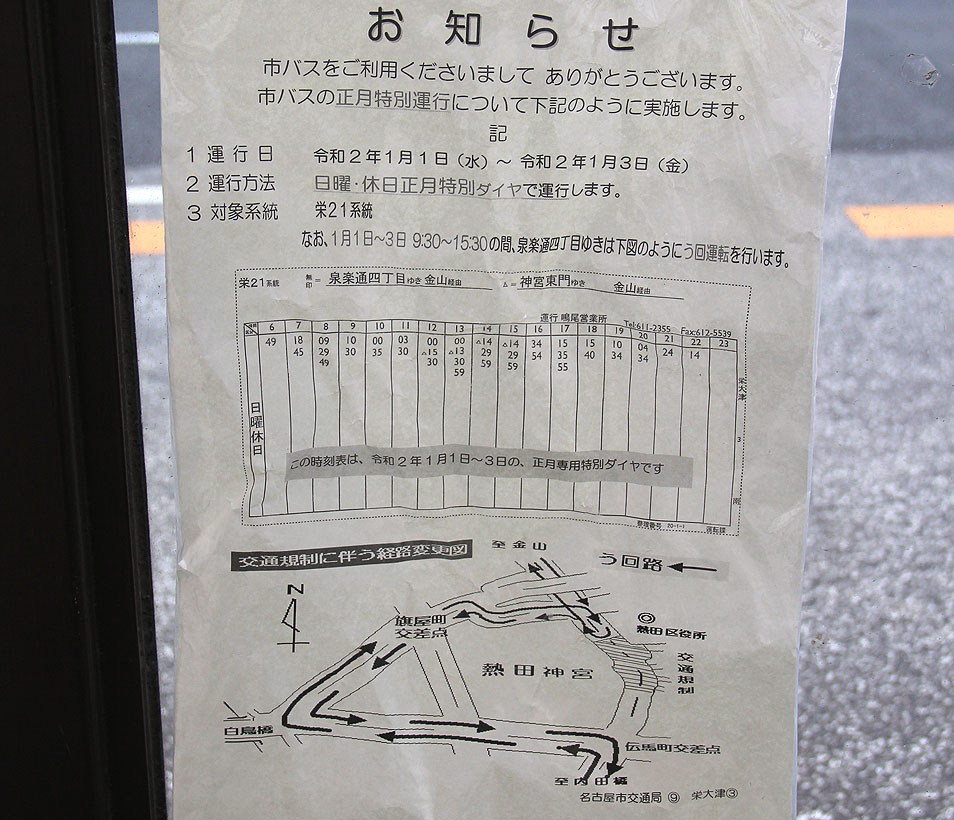 お知らせ
市バスをご利用くださいまして ありがとうございます。
市バスの正月特別運行について下記のように実施します。
記
1 運行日 令和2年1月1日（水）～ 令和2年1月3日（金）
2 運行方法 日曜・休日正月特別ダイヤで運行します。
3 対象系統 栄21系統
なお、1月1日～3日 9:30～15:30の間、泉楽通四丁目ゆきは下図のようにう回運転を行います。
栄21系統 無印= 泉楽通四丁目ゆき 金山経由 △= 神宮東門ゆき 金山経由
運行 鳴尾営業所 Tel:611-2355 Fax:612-5539
6 7 8 9 10 11 12 13 14 15 16 17 18 19 20 21 22 23
49 18 09 10 00 03 00 00 △14 △14 34 15 15 10 04 24 14
45 29 30 35 30 △15 △13 29 29 54 35 40 34 34
49 30 30 59 59 55
59
日曜休日
栄大津
3
南
この時刻表は、令和2年1月1日～3日の、正月専用特別ダイヤです
整理番号 20-1-1 運転課
交通規制に伴う経路変更図
至金山
う回路
N
旗屋町
交差点
熱田区役所
熱田神宮
交通規制
白鳥橋
伝馬町交差点
至内田橋
名古屋市交通局 ⑨ 栄大津③